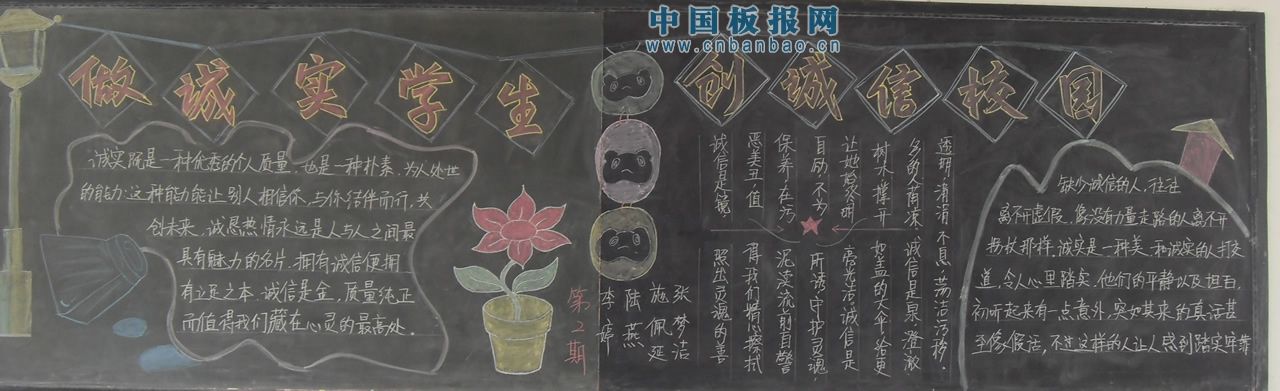 中国板报网
www.cnbanbao.cn
做诚实学生
创诚信校园
诚实既是一种优秀的个人质量,也是一种朴素、为人处世
的能力.这种能力能让别人相信你,与你结伴而行,共
创未来.诚恳热情永远是人与人之间最
具有魅力的名片.拥有诚信便拥
有立足之本.诚信是金,质量纯正
而值得我们藏在心灵的最高处.
第2期
李婷
陆燕
施佩延
张梦洁
诚信是镜 照出灵魂的善
恶美丑,值 得我们精心擦拭
保养.在污 泥浊流前自警
自励,不为 所诱,守护灵魂,
让她始终明 亮光洁.诚信是
树木,撑开 如盖的大伞,给更
多的人荫凉.诚信是泉,澄澈
透明,涓涓不息,荡涤污秽.
缺少诚信的人,往往
离不开虚假,像没有力量走路的人离不开
拐杖那样.诚实是一种美.和诚实的人打交
道,令人心里踏实.他们的平静以及坦白,
初听起来有一点意外,突如其来的真话甚
至像假话,不过这样的人让人感到踏实牢靠